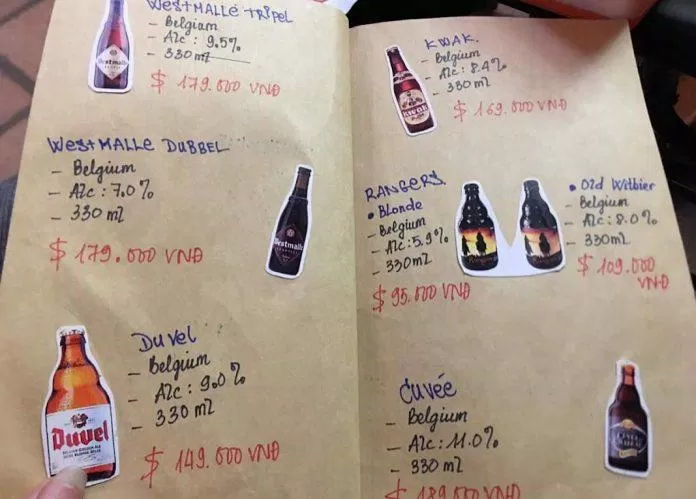 WESTMALLE TRIPEL
- Belgium
- Alc : 9.5%
- 330 ml
$ 179.000 VNĐ
Westmalle
WESTMALLE DUBBEL
- Belgium
- Alc : 7.0%
- 330 ml
$ 179.000 VNĐ
Westmalle
Duvel
- Belgium
- Alc : 9.0%
- 330 ml
$ 149.000 VNĐ
Duvel
KWAK.
- Belgium
- Alc : 8.4%
- 330 ml
$ 169.000 VNĐ
KWAK
RANGERS
• Blonde
- Belgium
- Alc : 5.9%
- 330ml
$ 95.000 VNĐ
• Old Witbier
- Belgium
- Alc : 8.0%
- 330ml
$ 109.000
VNĐ
Cuvée
- Belgium
- Alc : 11.0%
- 330 ml
$ 189.000 VNĐ